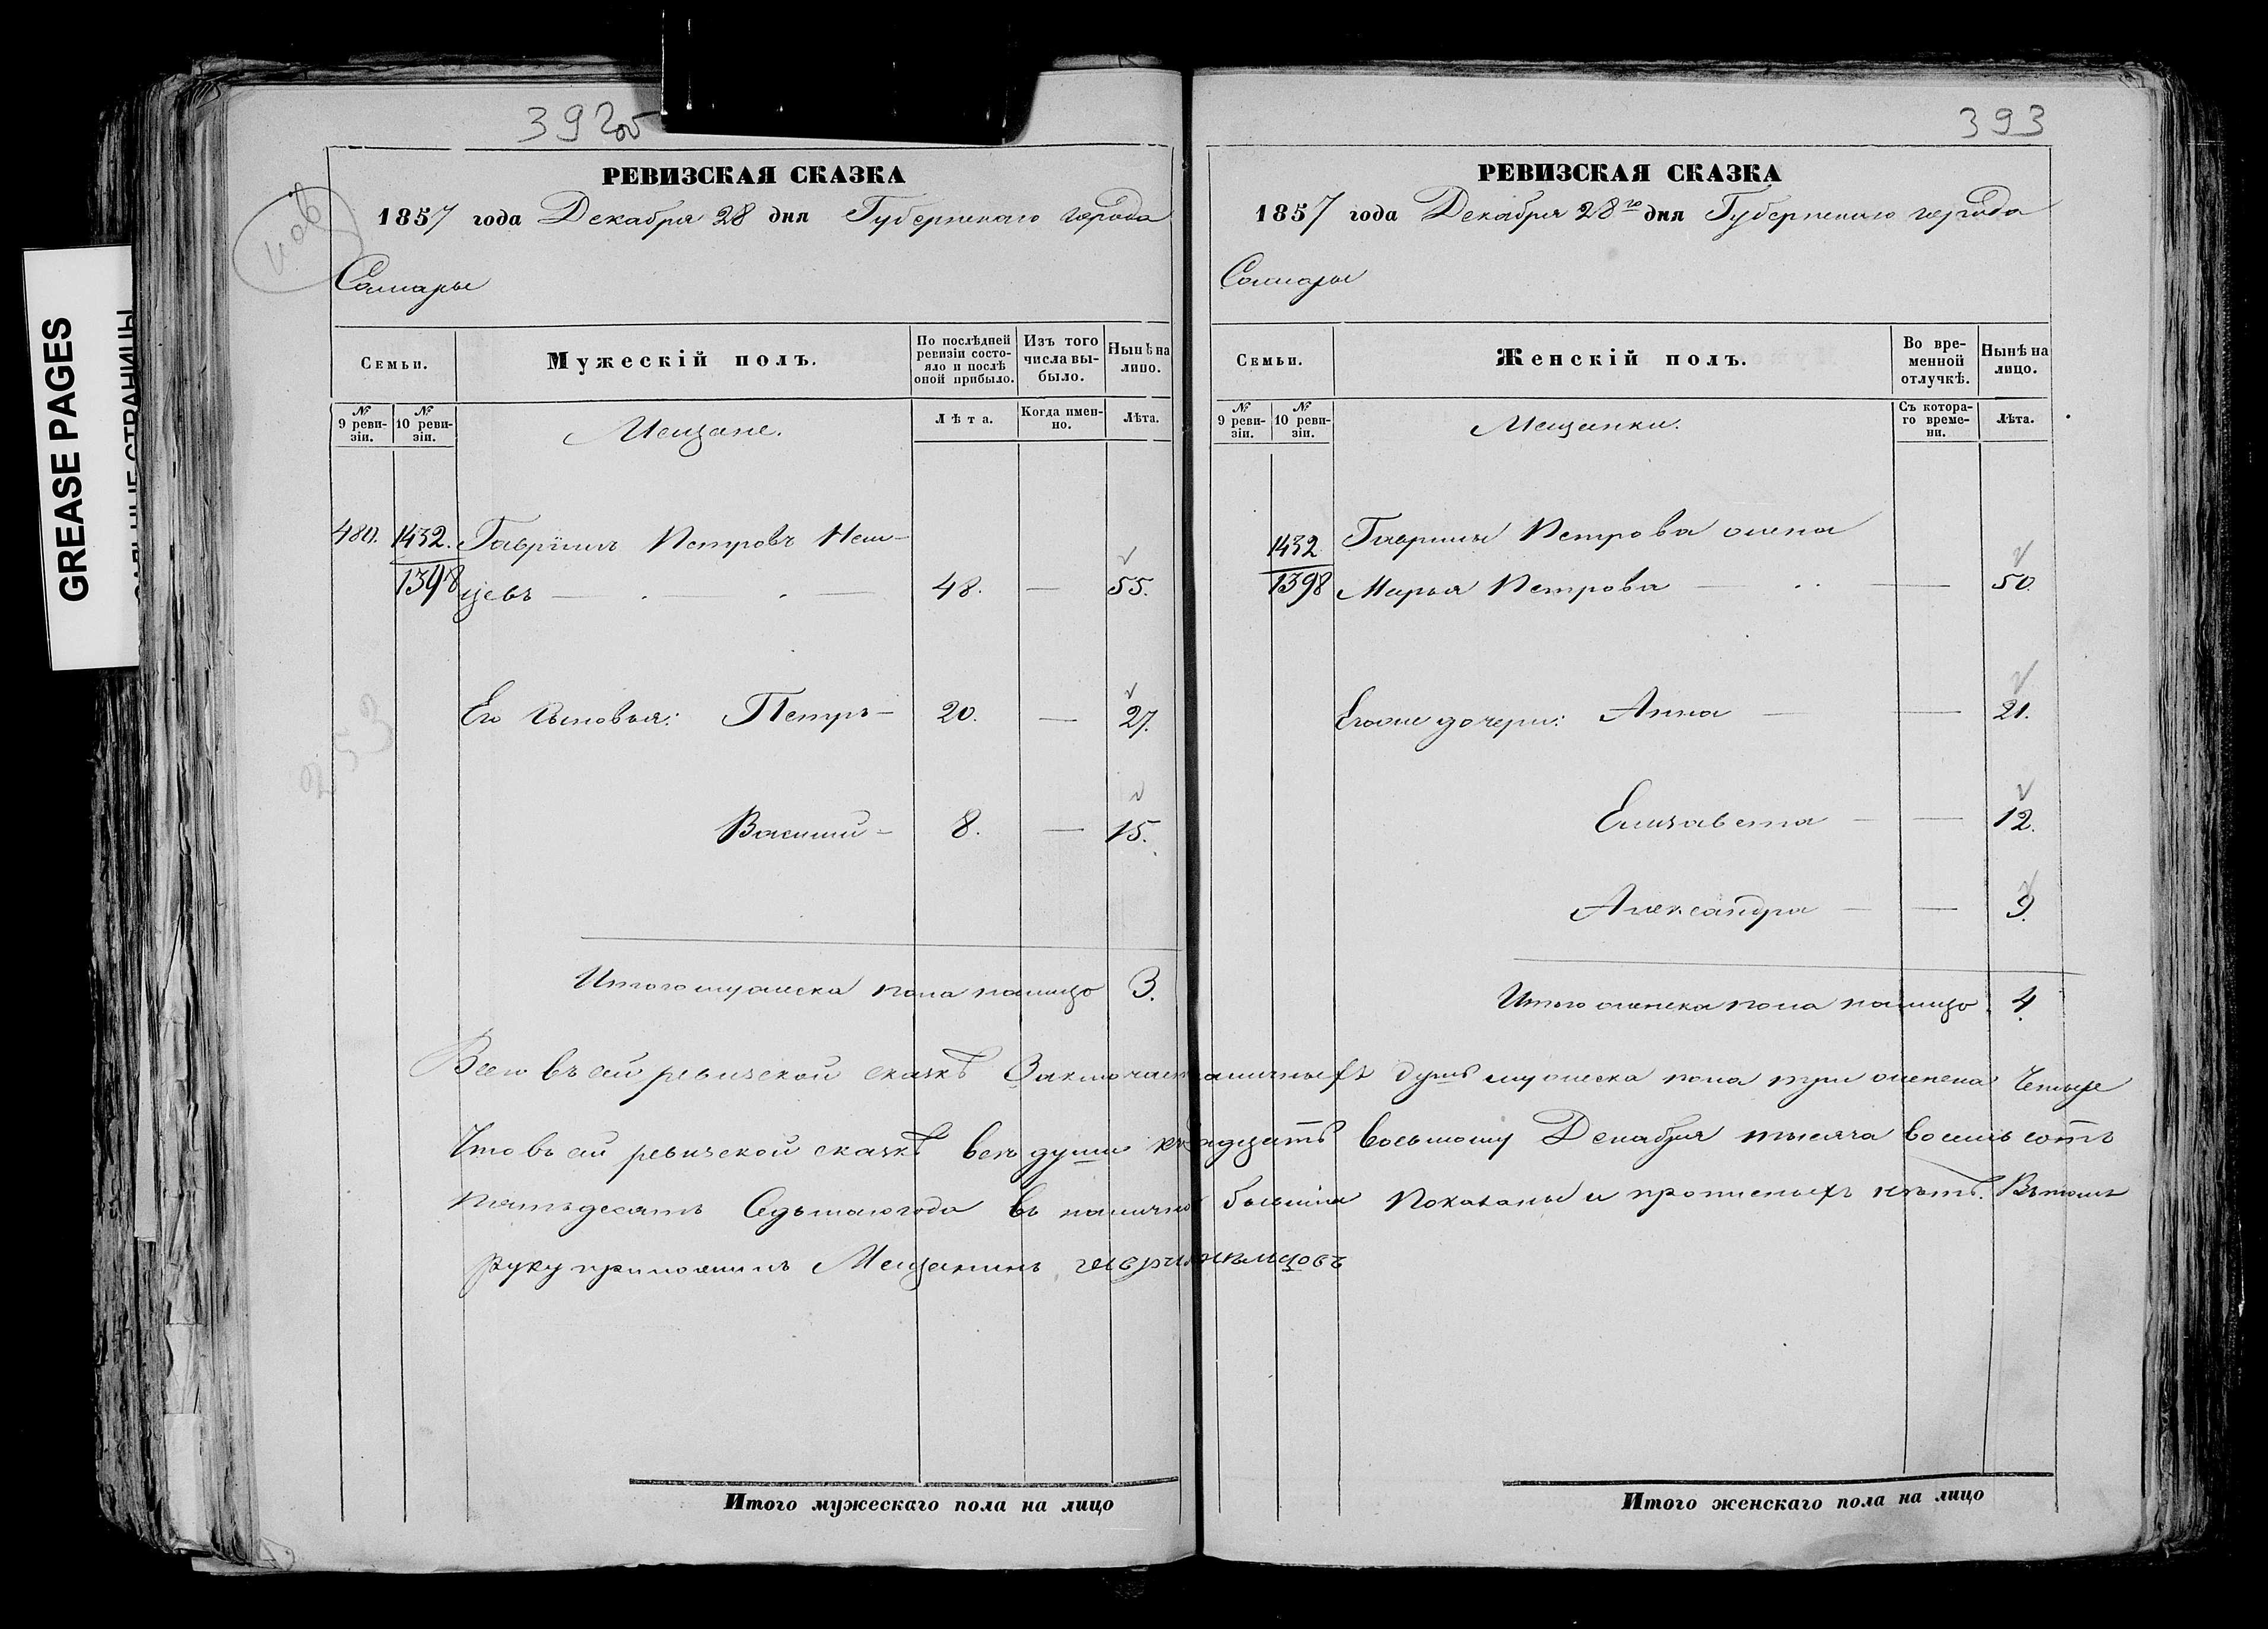 GREASE PAGES
392об
РЕВИЗСКАЯ СКАЗКА
1857 года Декабря 28 дня Губернскаго города
Самары
Семьи.
Мужескiй полъ.
По послѣдней ревизiи состо-
яло и послѣ
оной прибыло.
Изъ того
числа вы-
было.
Нынѣ на
лицо.
№
9 реви-
зiи.
№
10 реви-
зiи.
Мещане.
Лѣта.
Когда имен-
но.
Лѣта.
480. 1432. Гаврiилъ Петровъ Нем-
1398 цовъ — 48. — 55.
Его сыновья: Петръ — 20. — 27.
Василий — 8. — 15.
Итого мужеска пола налицо 3.
Итого мужескаго пола на лицо
393
РЕВИЗСКАЯ СКАЗКА
1857 года Декабря 28го дня Губернскаго города
Самары
Семьи.
Женскiй полъ.
Во вре-
менной
отлучкѣ.
Нынѣ на
лицо.
№
9 реви-
зiи.
№
10 реви-
зiи.
Мещанки.
Съ котора-
го време-
ни.
Лѣта.
1432 Гаврилы Петрова жена
1398 Марья Петрова — — 50.
Егоже дочери: Анна — — 21.
Елизавета — — 12.
Александра — — 9.
Итого женска пола налицо 4.
Всего въ сей ревизской сказкѣ Заключает наличныхъ душъ мужеска пола три женска Четыре
Что въ сей ревизской сказкѣ все души къ двадцать восьмому Декабря тысяча восемь сотъ
пятьдесятъ Седьмаго года въ налично бывшiя показаны и прописныхъ нѣтъ. Въ томъ
руку приложилъ Мещанинъ гаврила немцовъ
Итого женскаго пола на лицо